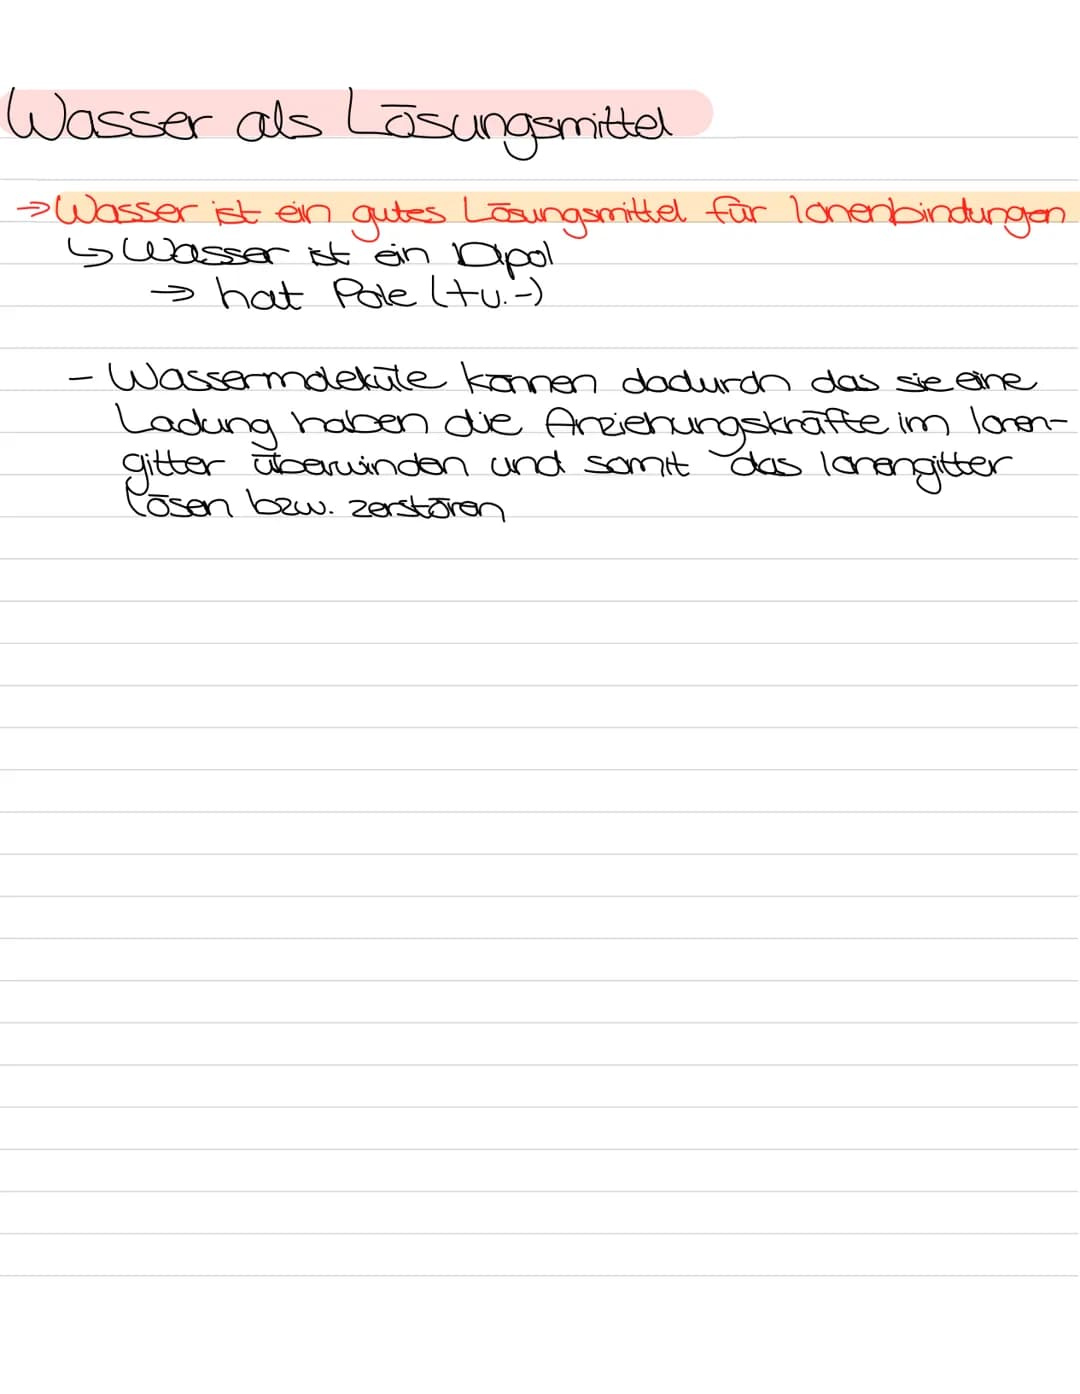 Wasser als Lösungsmittel
→ Wasser ist ein gutes Lösungsmittel für Ionenbindungen
↳ Wasser ist ein Dipol
→ hat Pole (+ u. -)
- Wassermoleküle können dadurch das sie eine
Ladung haben die Anziehungskräfte im Ionen-
gitter überwinden und somit das Ionengitter
lösen bzw. zerstören